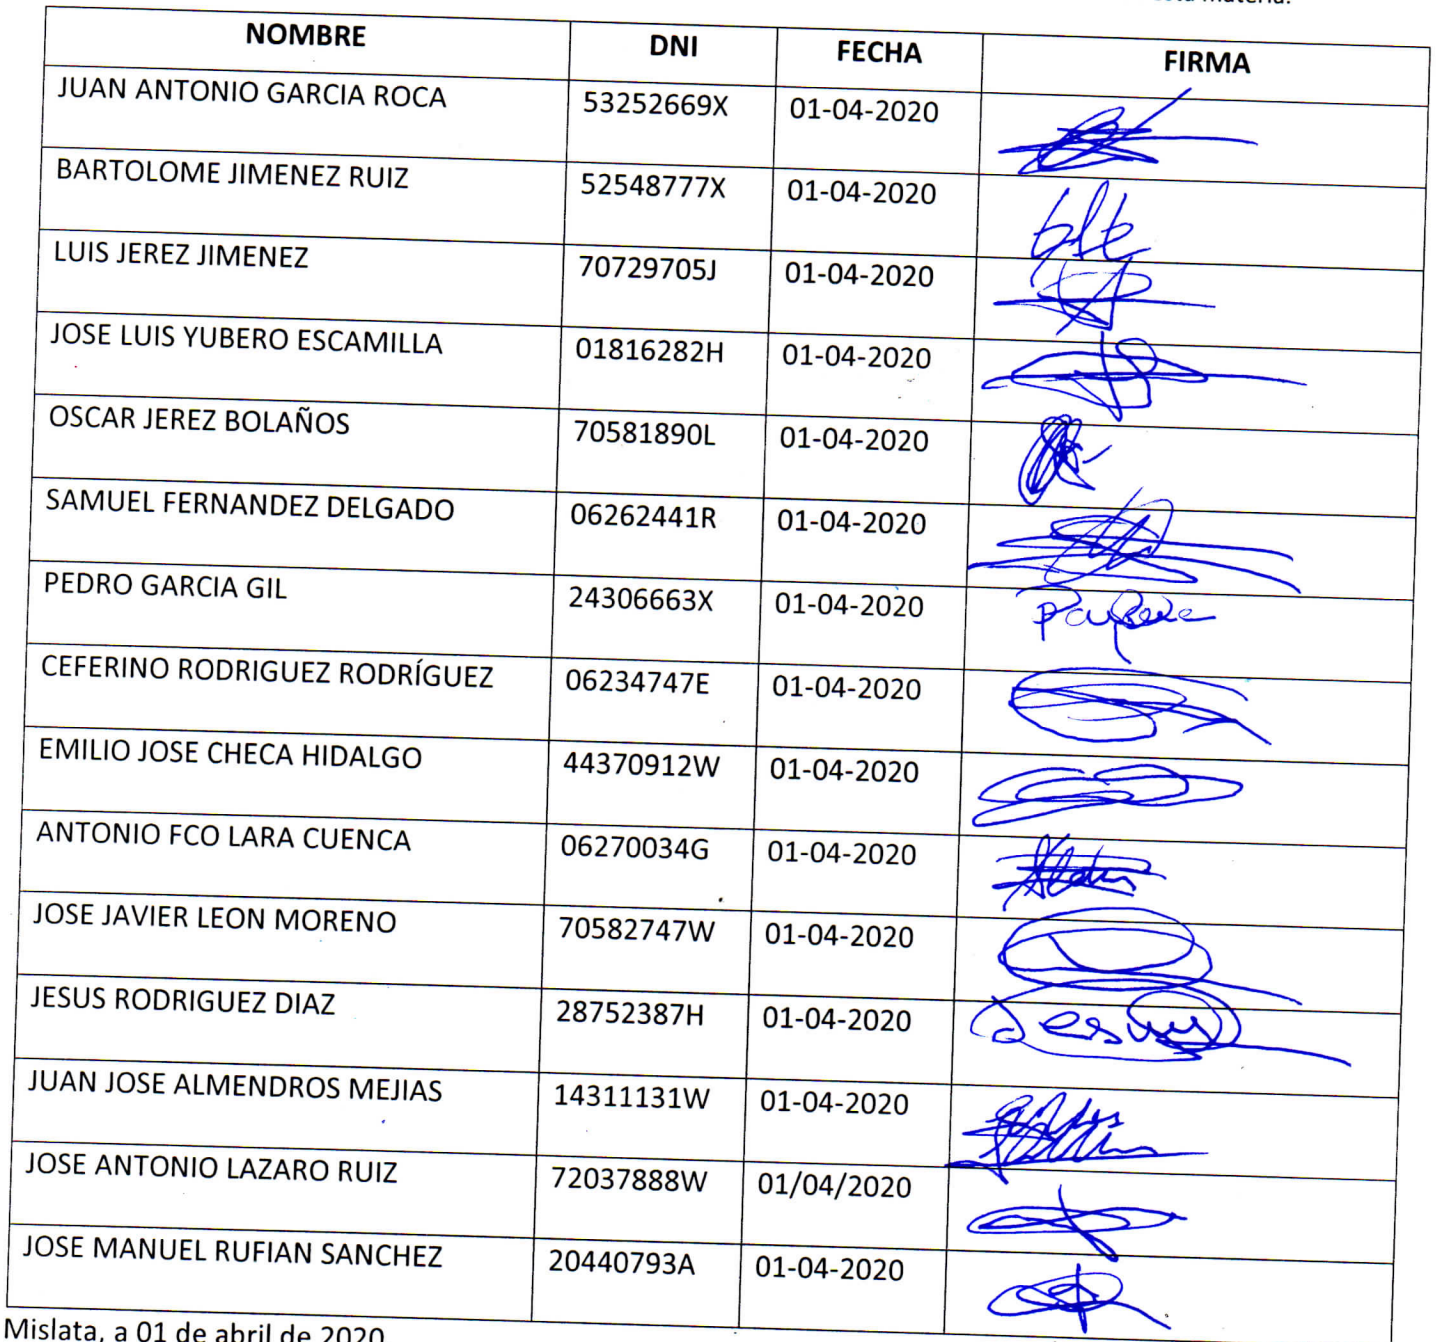 materia.
NOMBRE DNI FECHA FIRMA
JUAN ANTONIO GARCIA ROCA 53252669X 01-04-2020
BARTOLOME JIMENEZ RUIZ 52548777X 01-04-2020
LUIS JEREZ JIMENEZ 70729705J 01-04-2020
JOSE LUIS YUBERO ESCAMILLA 01816282H 01-04-2020
OSCAR JEREZ BOLAÑOS 70581890L 01-04-2020
SAMUEL FERNANDEZ DELGADO 06262441R 01-04-2020
PEDRO GARCIA GIL 24306663X 01-04-2020
CEFERINO RODRIGUEZ RODRÍGUEZ 06234747E 01-04-2020
EMILIO JOSE CHECA HIDALGO 44370912W 01-04-2020
ANTONIO FCO LARA CUENCA 06270034G 01-04-2020
JOSE JAVIER LEON MORENO 70582747W 01-04-2020
JESUS RODRIGUEZ DIAZ 28752387H 01-04-2020 Jesus
JUAN JOSE ALMENDROS MEJIAS 14311131W 01-04-2020
JOSE ANTONIO LAZARO RUIZ 72037888W 01/04/2020
JOSE MANUEL RUFIAN SANCHEZ 20440793A 01-04-2020
Mislata, a 01 de abril de 2020